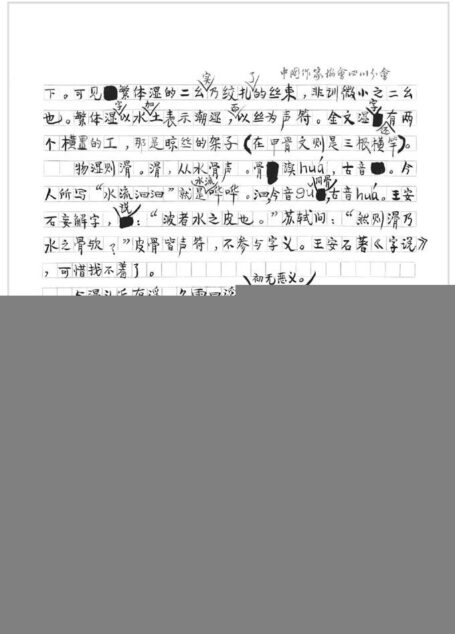 中國作家協會四川分會
下。可见繁体湿的二幺实乃绞扎了的丝束，非训微小之二幺
也。繁体湿字以水加土表示潮湿，而以丝为声符。金文湿字有两
个横置的工，那是晾丝的架子（在甲骨文则是三根横竿）。
物湿则滑。滑，从水骨声。骨读huá，古音。今
人所写“水流汩汩”就是水流哗哗。汩，今音gu同骨，古音huá。王安
石妄解字，说：“波者水之皮也。”苏轼问：“然则滑乃
水之骨欤？”皮骨皆声符，不参与字义。王安石著《字说》
，可惜找不着了。
初无恶义。